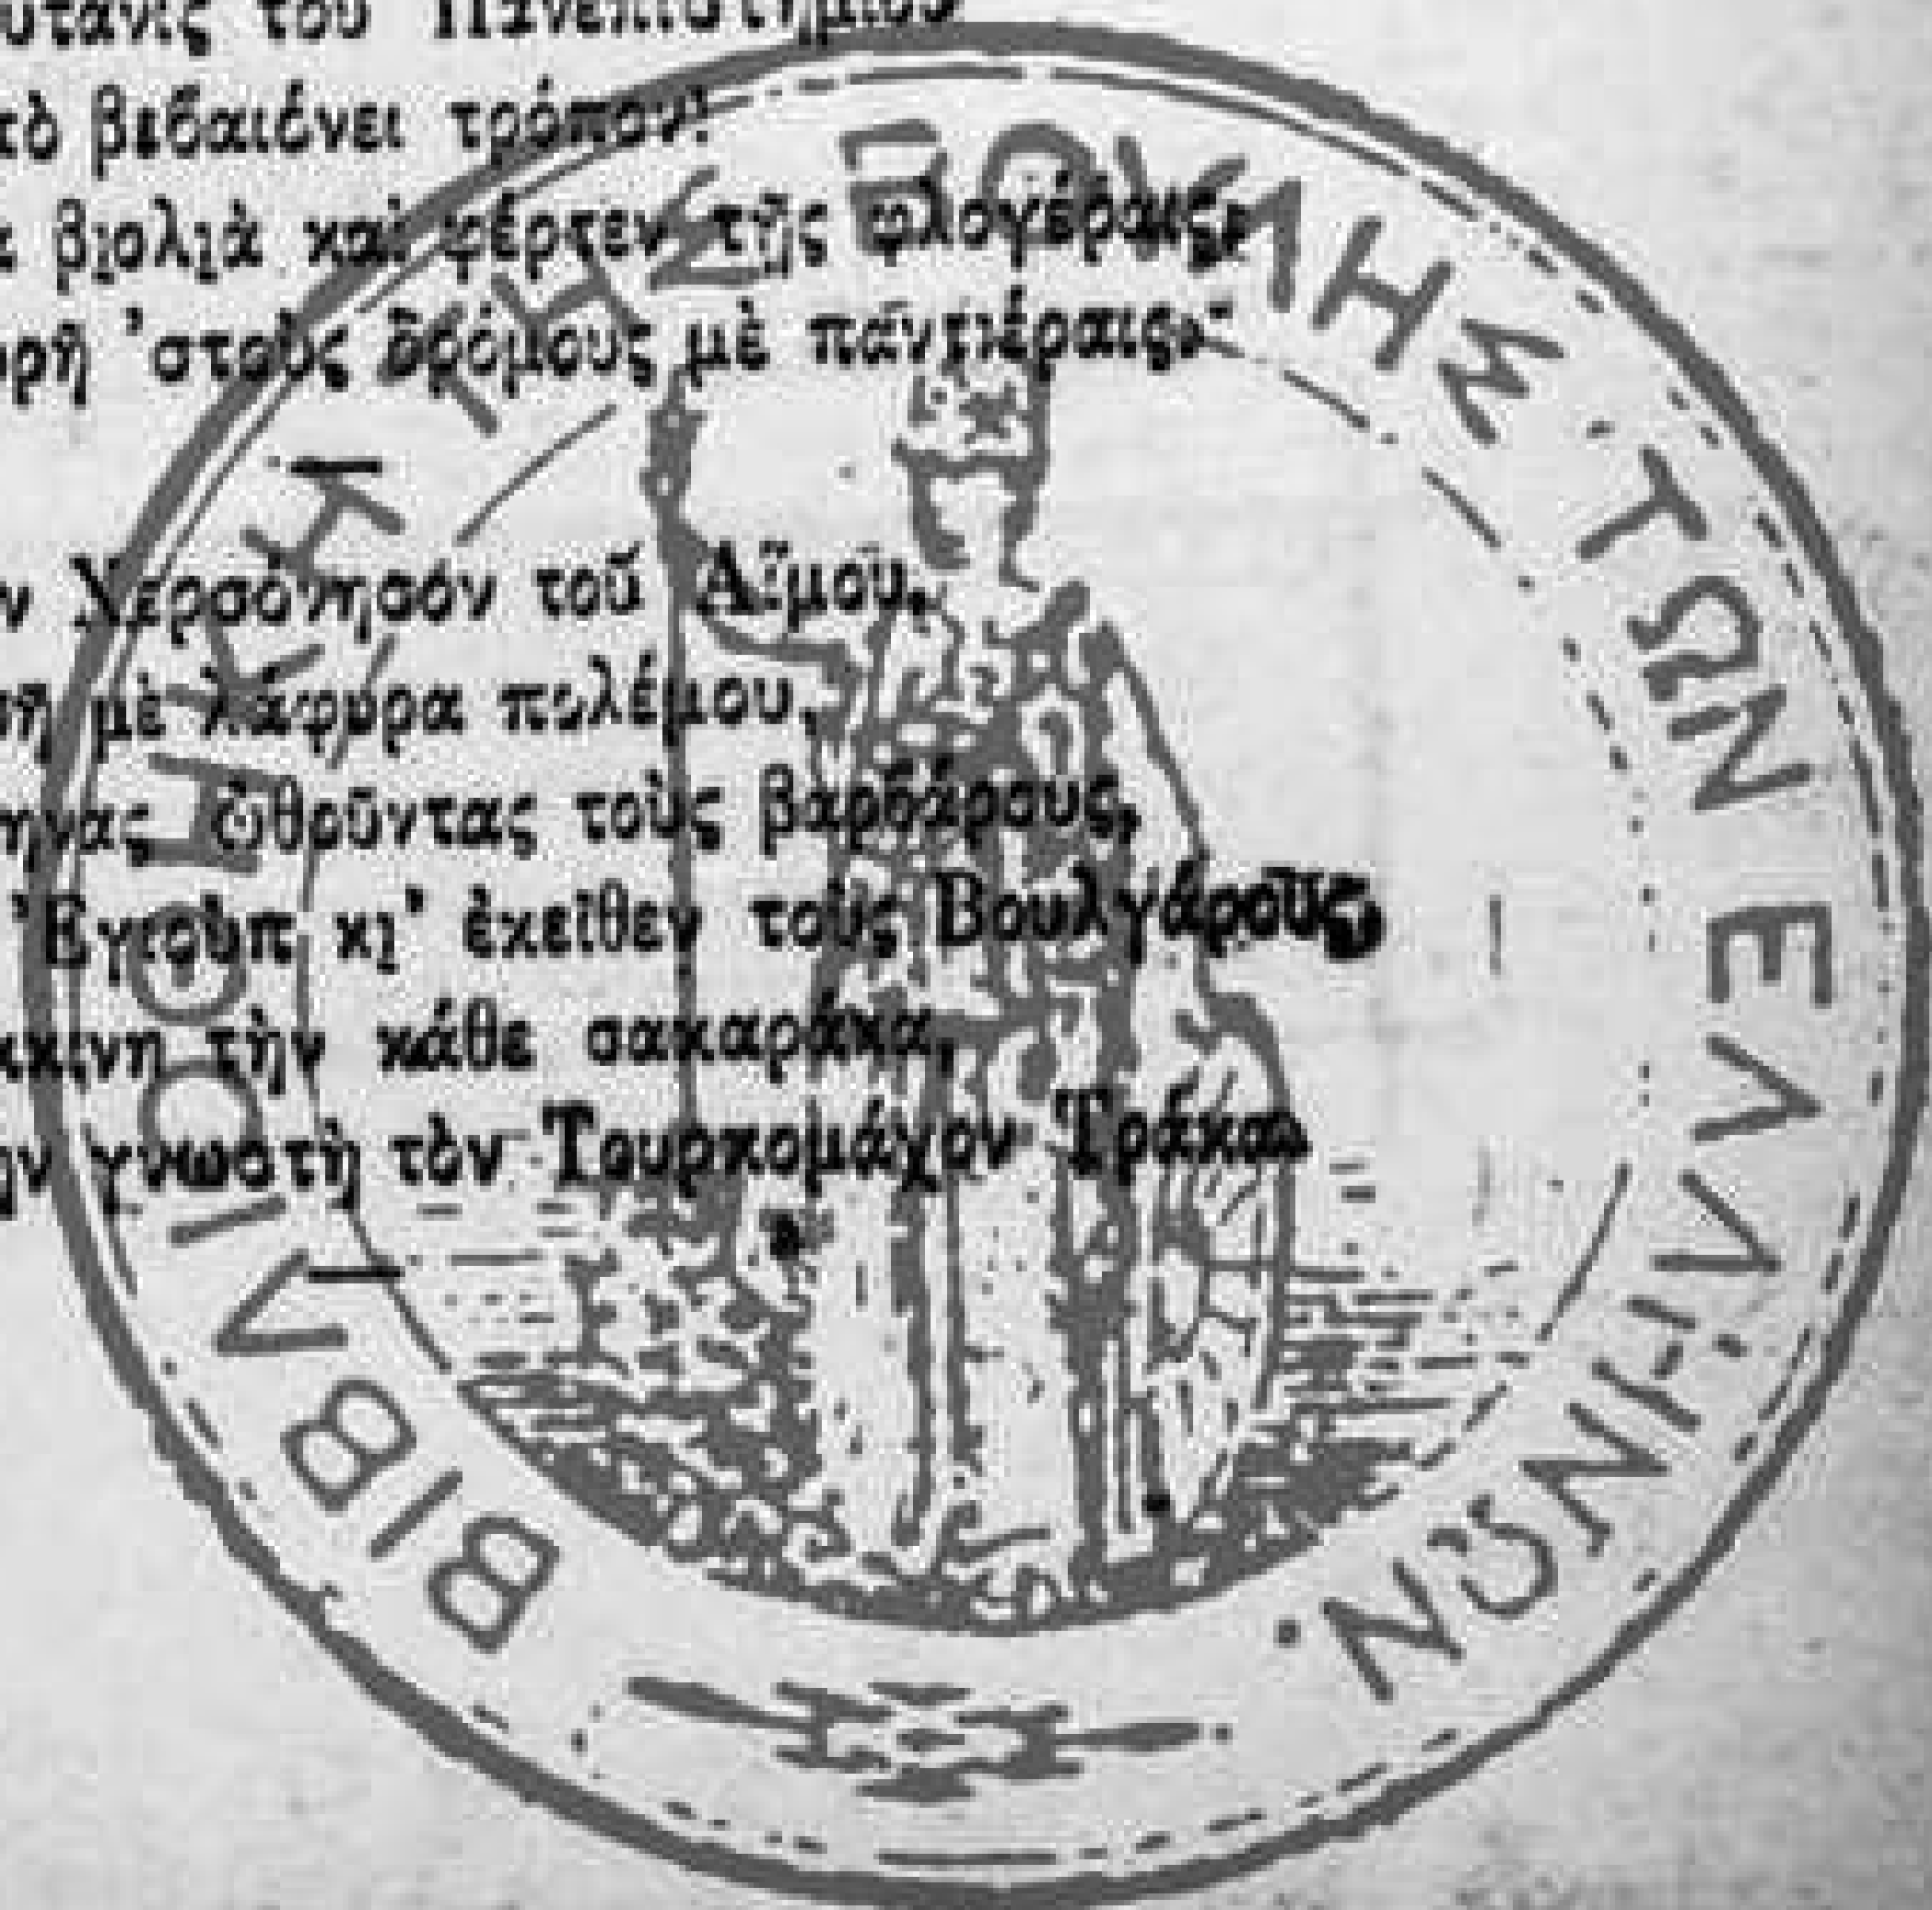 τοῦ Πανεπιστημίου
βεβαιόνει τρόπον!
βιολιὰ καὶ φέρτεν τῇς φλογέραις,
'στοὺς δρόμους μὲ παντιέραις·
Χερσόνησον τοῦ Αἵμου,
μὲ λάφυρα πολέμου,
ὠθοῦντας τοὺς βαρβάρους,
Ἐγιοὺπ κι' ἐκεῖθεν τοὺς Βουλγάρους
τὴν κάθε σακαράκα,
γνωστὴ τὸν Τουρκομάχον Τράκα
ΒΙΒΛΙΟΘΗΚΗ ΤΗΣ ΒΟΥΛΗΣ ΤΩΝ ΕΛΛΗΝΩΝ.